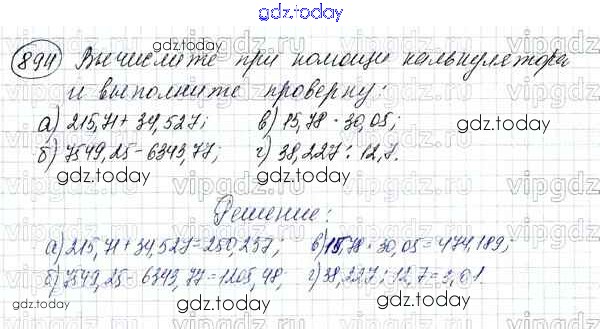 gdz.today
894 Вычислите при помощи калькулятора
и выполните проверку:
а) 215,71 + 34,527; в) 15,78 · 30,05;
б) 7549,25 - 6343,77; г) 38,227 : 12,7.
gdz.today gdz.today
Решение:
а) 215,71 + 34,527 = 250,237; в) 15,78 · 30,05 = 474,189;
б) 7549,25 - 6343,77 = 1205,48; г) 38,227 : 12,7 = 3,01.
gdz.today gdz.today